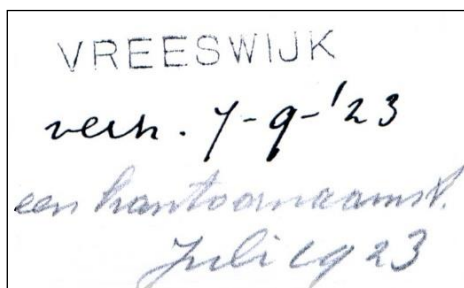 VREESWIJK
verh. 7-9-'23
een kantoornaamst.
Juli 1923